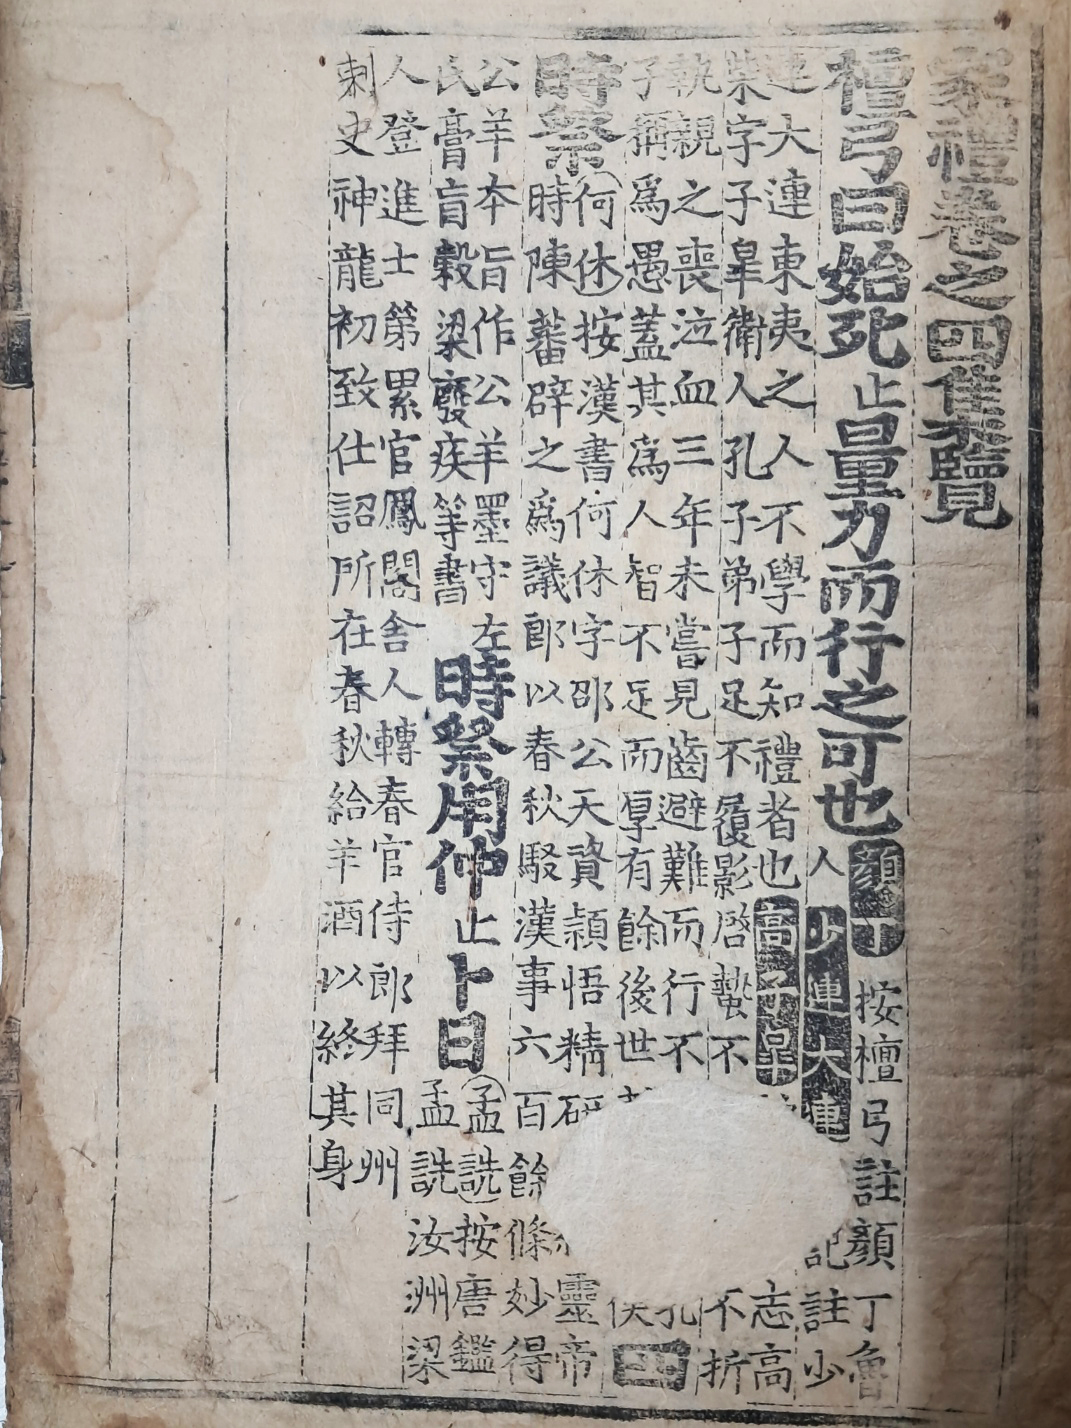 家禮卷之四集覽
檀弓曰始死止量力而行之可也顔丁按檀弓註顔丁魯
人少連大連記註少
連大連東夷之人不學而知禮者也高子皐志高
柴字子皐衛人孔子弟子足不履影啓蟄不不折
執親之喪泣血三年未嘗見齒避難而行不孔
子稱爲愚蓋其爲人智不足而厚有餘後世
時祭何休按漢書何休字邵公天資頴悟精研靈帝
時陳蕃辟之爲議郎以春秋駁漢事六百餘條妙得
公羊本旨作公羊墨守左
氏膏肓穀梁廢疾等書時祭用仲止卜日孟詵按唐鑑
孟詵汝洲梁
人登進士第累官鳳閣舍人轉春官侍郎拜同州
刺史神龍初致仕詔所在春秋給羊酒以終其身